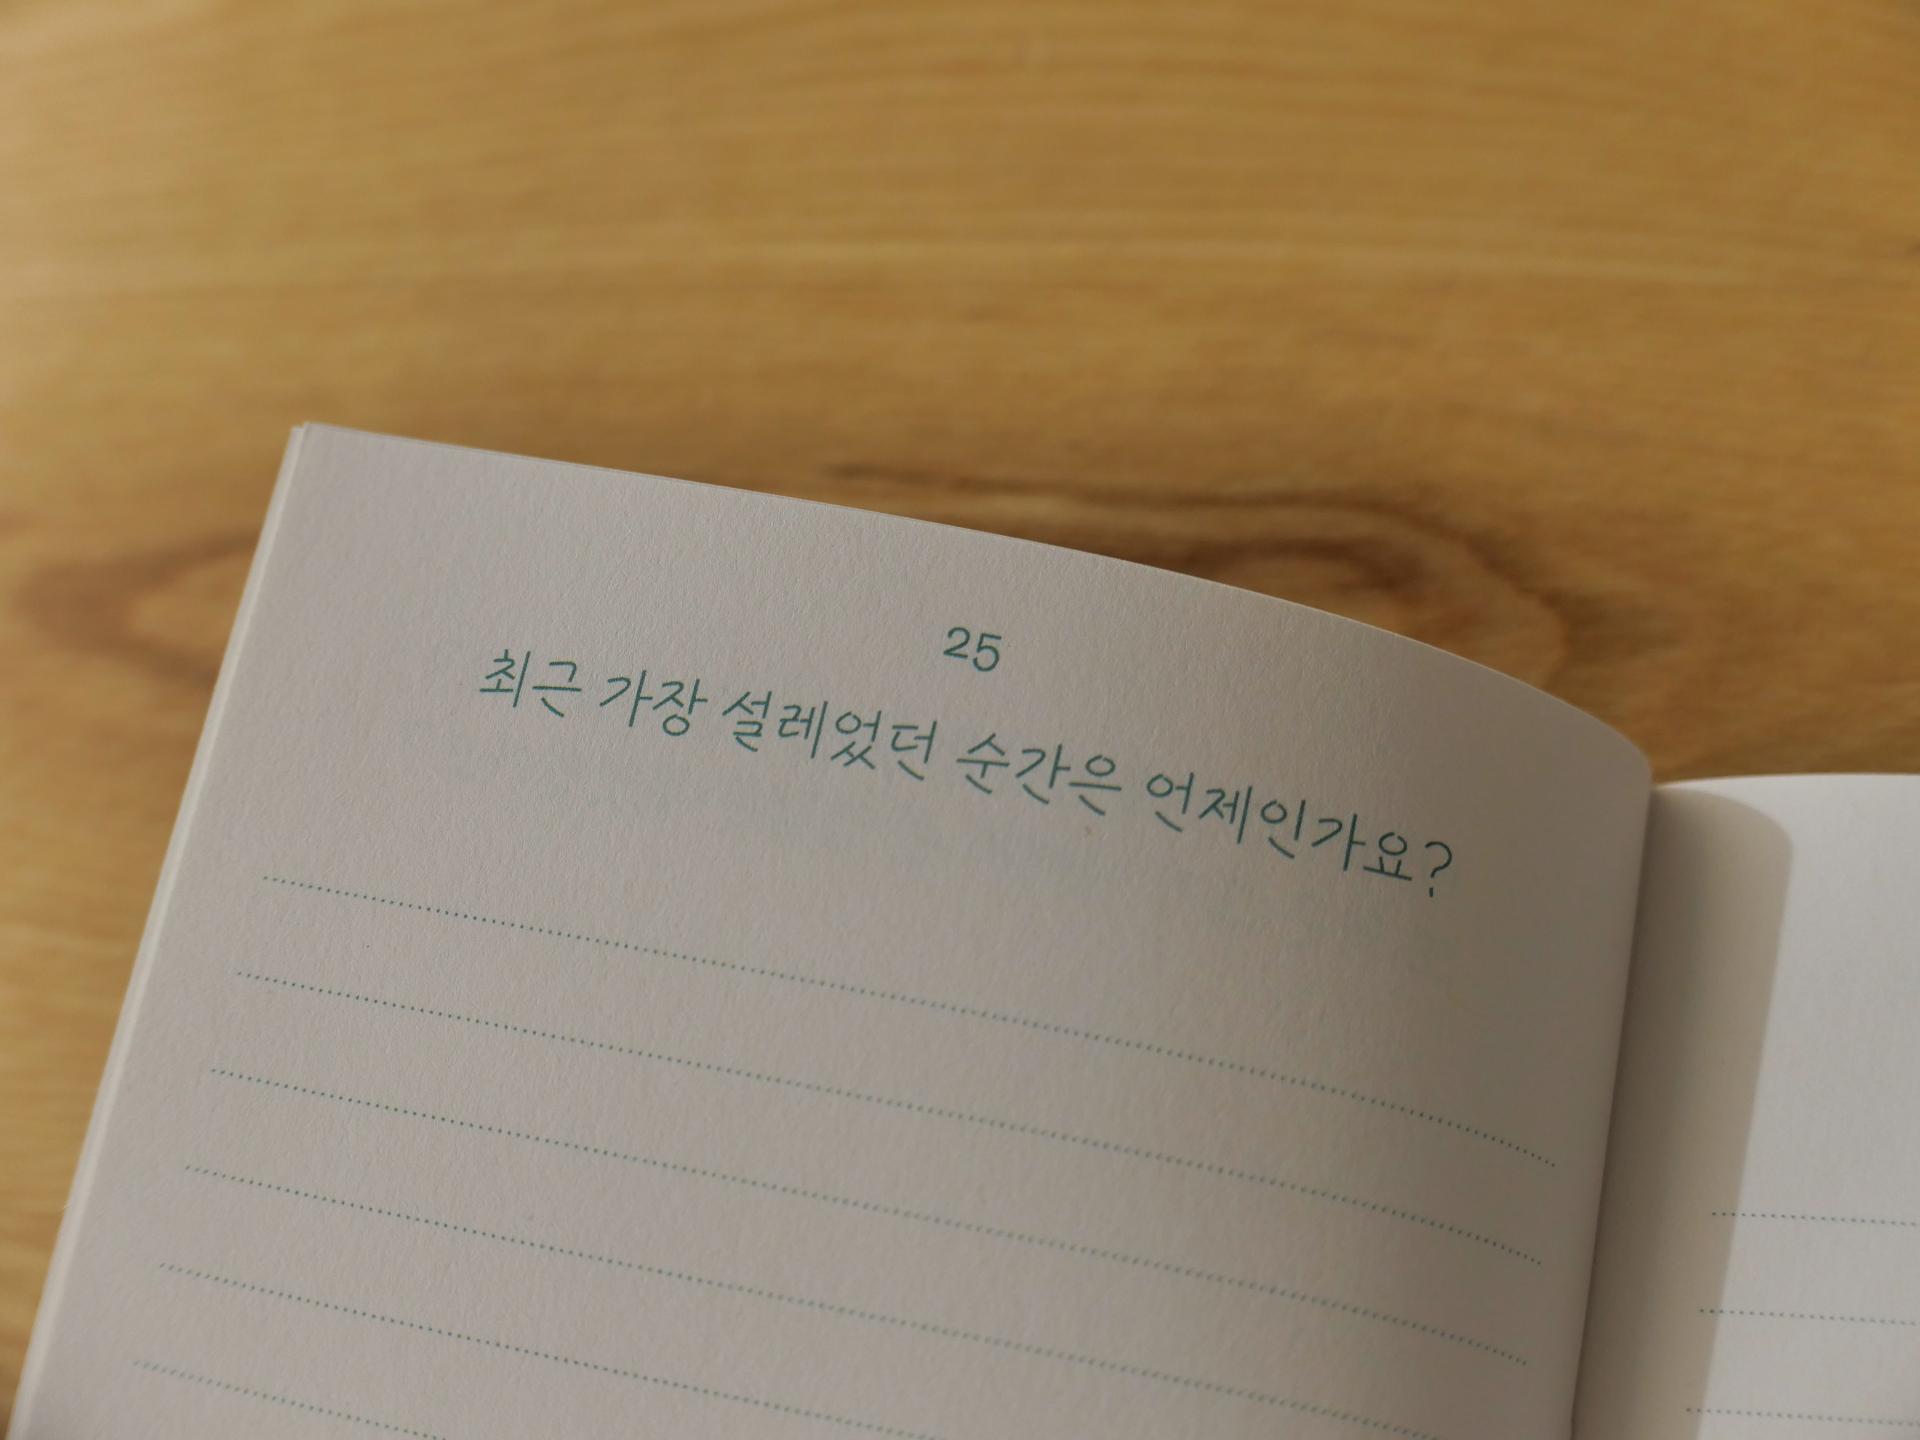 25
최근 가장 설레었던 순간은 언제인가요?